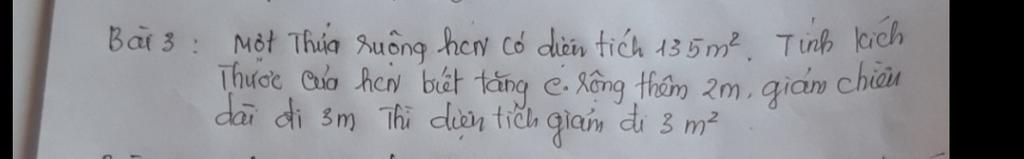 Bài 3 : Một Thửa ruộng hcn có diện tích 135m². Tính kích
Thước của hcn biết tăng c. rộng thêm 2m, giảm chiều
dài đi 3m Thì diện tích giảm đi 3 m²